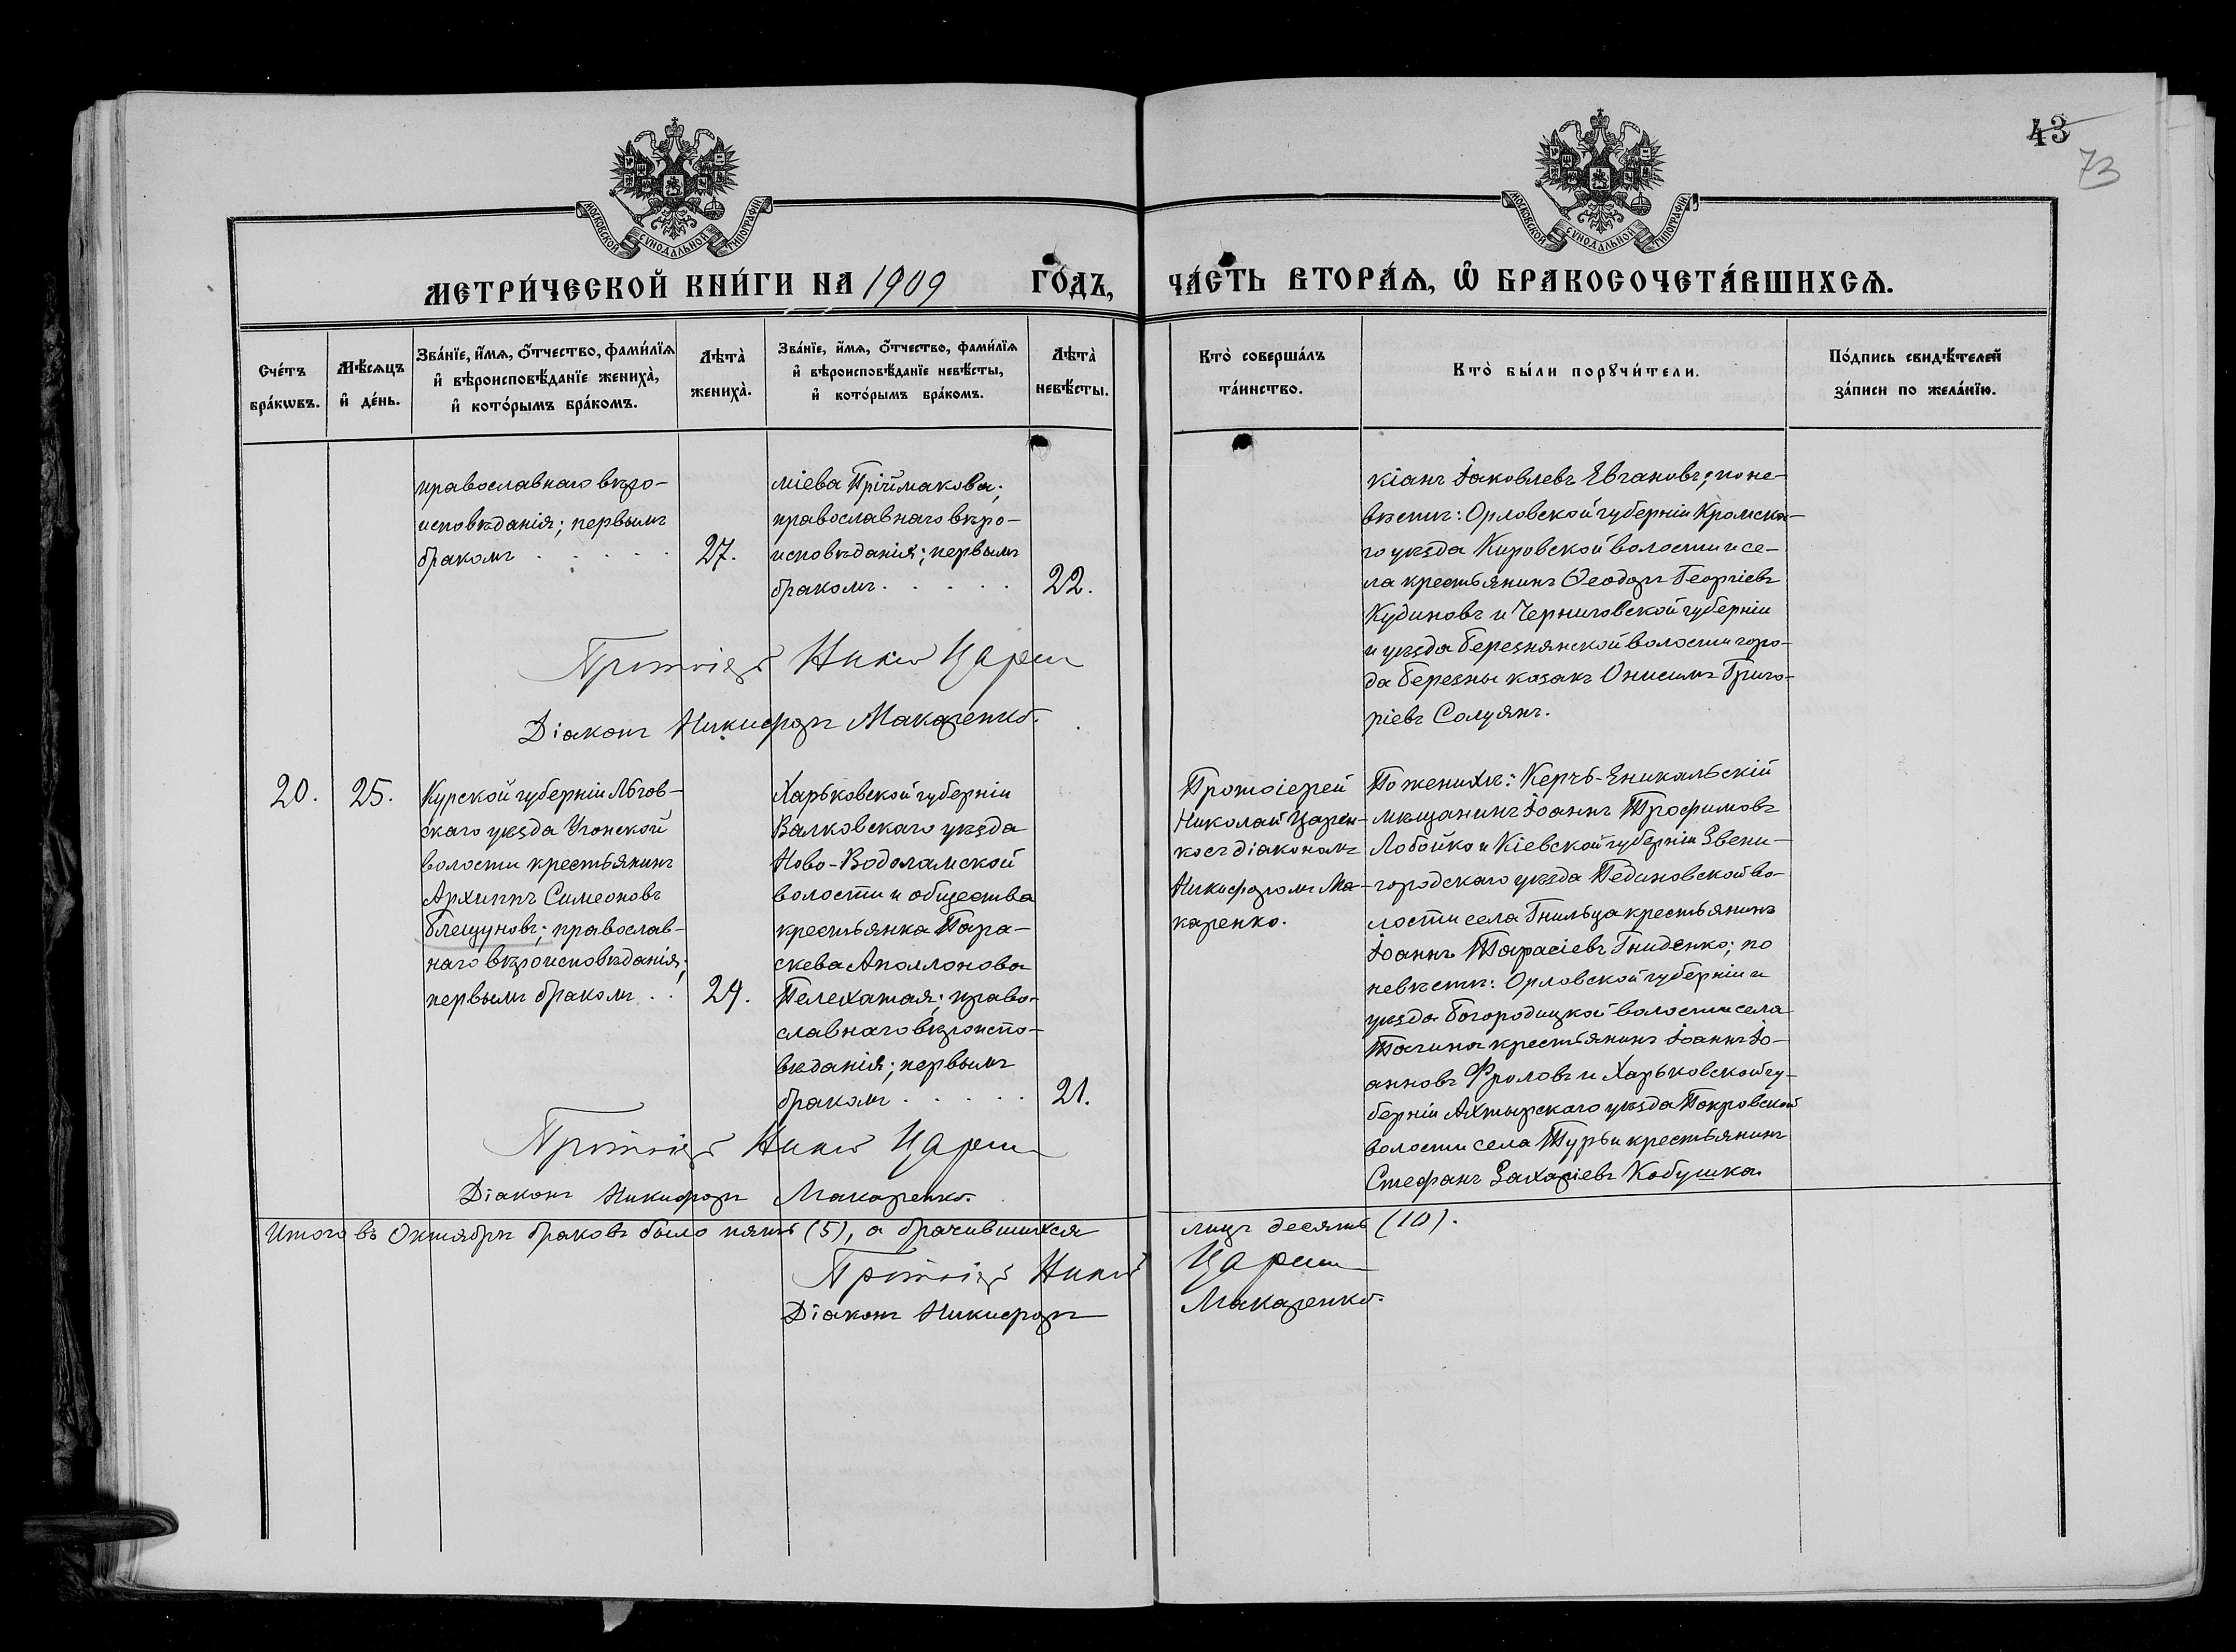 43
73
МОСКОВСКОЙ СѴНОДАЛЬНОЙ ТИПОГРАФІИ
МОСКОВСКОЙ СѴНОДАЛЬНОЙ ТИПОГРАФІИ
МЕТРИ́ЧЕСКОЙ КНИ́ГИ НА 1909 ГО́ДЪ,
ЧА́СТЬ ВТОРА́Ѧ, Ѽ БРАКОСОЧЕТА́ВШИХСѦ.
Сче́тъ
бра́кѡвъ.
Мѣ́сѧцъ
и҆ де́нь.
Зва́нїе, и҆́мѧ, ѻ҆́тчество, фами́лїѧ
и҆ вѣроисповѣ́данїе жениха̀,
и҆ кото́рымъ бра́комъ.
Лѣта̀
жениха̀.
Зва́нїе, и҆́мѧ, ѻ҆́тчество, фами́лїѧ
и҆ вѣроисповѣ́данїе невѣ́сты,
и҆ кото́рымъ бра́комъ.
Лѣта̀
невѣ́сты.
Кто̀ соверша́лъ
та́инство.
Кто̀ бы́ли порꙋчи́тели.
По́дпись свидѣ́телей
за́писи по жела́нїю.
православнаго вѣро-
исповѣданія; первымъ
бракомъ . . . . .
27.
міева Пріймакова;
православнаго вѣро-
исповѣданія; первымъ
бракомъ . . . . .
22.
кіанъ Іаковлевъ Евгановъ; по не-
вѣстѣ: Орловской губерніи Кромска-
го уѣзда Кировской волости и се-
ла крестьянинъ Ѳеодоръ Георгіевъ
Кудиновъ и Черниговской губерніи
и уѣзда Березнянской волости горо-
да Березны козакъ Онисимъ Григо-
ріевъ Солуянъ.
Протоіер Никол Царен
Діаконъ Никифоръ Макаренко.
20.
25.
Курской губерніи Льгов-
скаго уѣзда Угонской
волости крестьянинъ
Архиппъ Симеоновъ
Блещуновъ; православ-
наго вѣроисповѣданія;
первымъ бракомъ . .
24.
Харьковской губерніи
Валковскаго уѣзда
Ново-Водоламской
волости и общества
крестьянка Пара-
скева Аполлонова
Пелехатая; право-
славнаго вѣроиспо-
вѣданія; первымъ
бракомъ . . . . .
21.
Протоіерей
Николай Царен-
ко съ діакономъ
Никифоромъ Ма-
каренко.
По женихѣ: Керчь-Еникальскій
мѣщанинъ Іоаннъ Трофимовъ
Лобойко и Кіевской губерніи Звени-
городскаго уѣзда Пединовской во-
лости села Гнильца крестьянинъ
Іоаннъ Тарасіевъ Гниденко; по
невѣстѣ: Орловской губерніи и
уѣзда Богородицкой волости села
Тагина крестьянинъ Іоаннъ Іо-
анновъ Фроловъ и Харьковской гу-
берніи Ахтырскаго уѣзда Покровской
волости села Турьи крестьянинъ
Стефанъ Захаріевъ Кобушка.
Протоіер Никол Царен
Діаконъ Никифоръ Макаренко.
Итого въ Октябрѣ браковъ было пять (5), а брачившихся лицъ десять (10).
Протоіер Никол Царен
Діаконъ Никифоръ Макаренко.